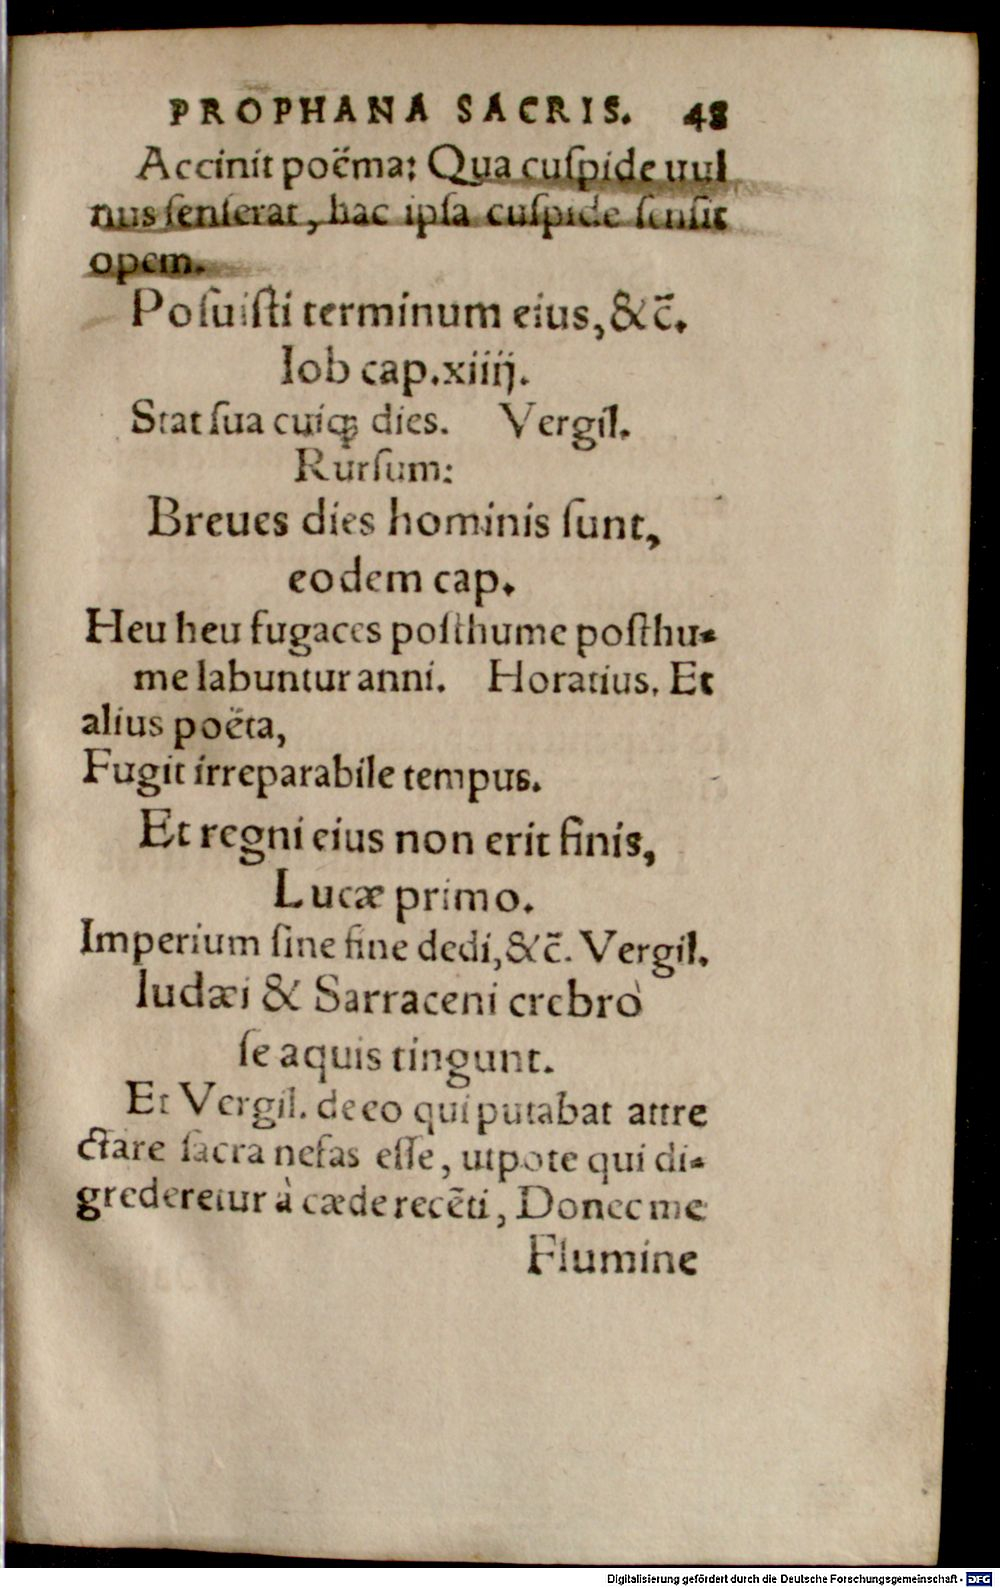 PROPHANA SACRIS. 48
Accinit poëma: Qua cuſpide uul
nus ſenſerat, hac ipſa cuſpide ſenſit
opem.
Poſuiſti terminum eius, &c̄.
Iob cap. xiiij.
Stat ſua cuiqꝫ dies. Vergil.
Rurſum:
Breues dies hominis ſunt,
eodem cap.
Heu heu fugaces poſthume poſthu-
me labuntur anni. Horatius. Et
alius poëta,
Fugit irreparabile tempus.
Et regni eius non erit finis,
Lucæ primo.
Imperium ſine fine dedi, &c̄. Vergil.
Iudæi & Sarraceni crebrò
ſe aquis tingunt.
Et Vergil. de eo qui putabat attre
ctare ſacra nefas eſſe, utpote qui di-
grederetur à cæde recēti, Donec me
Flumine
Digitalisierung gefördert durch die Deutsche Forschungsgemeinschaft - DFG